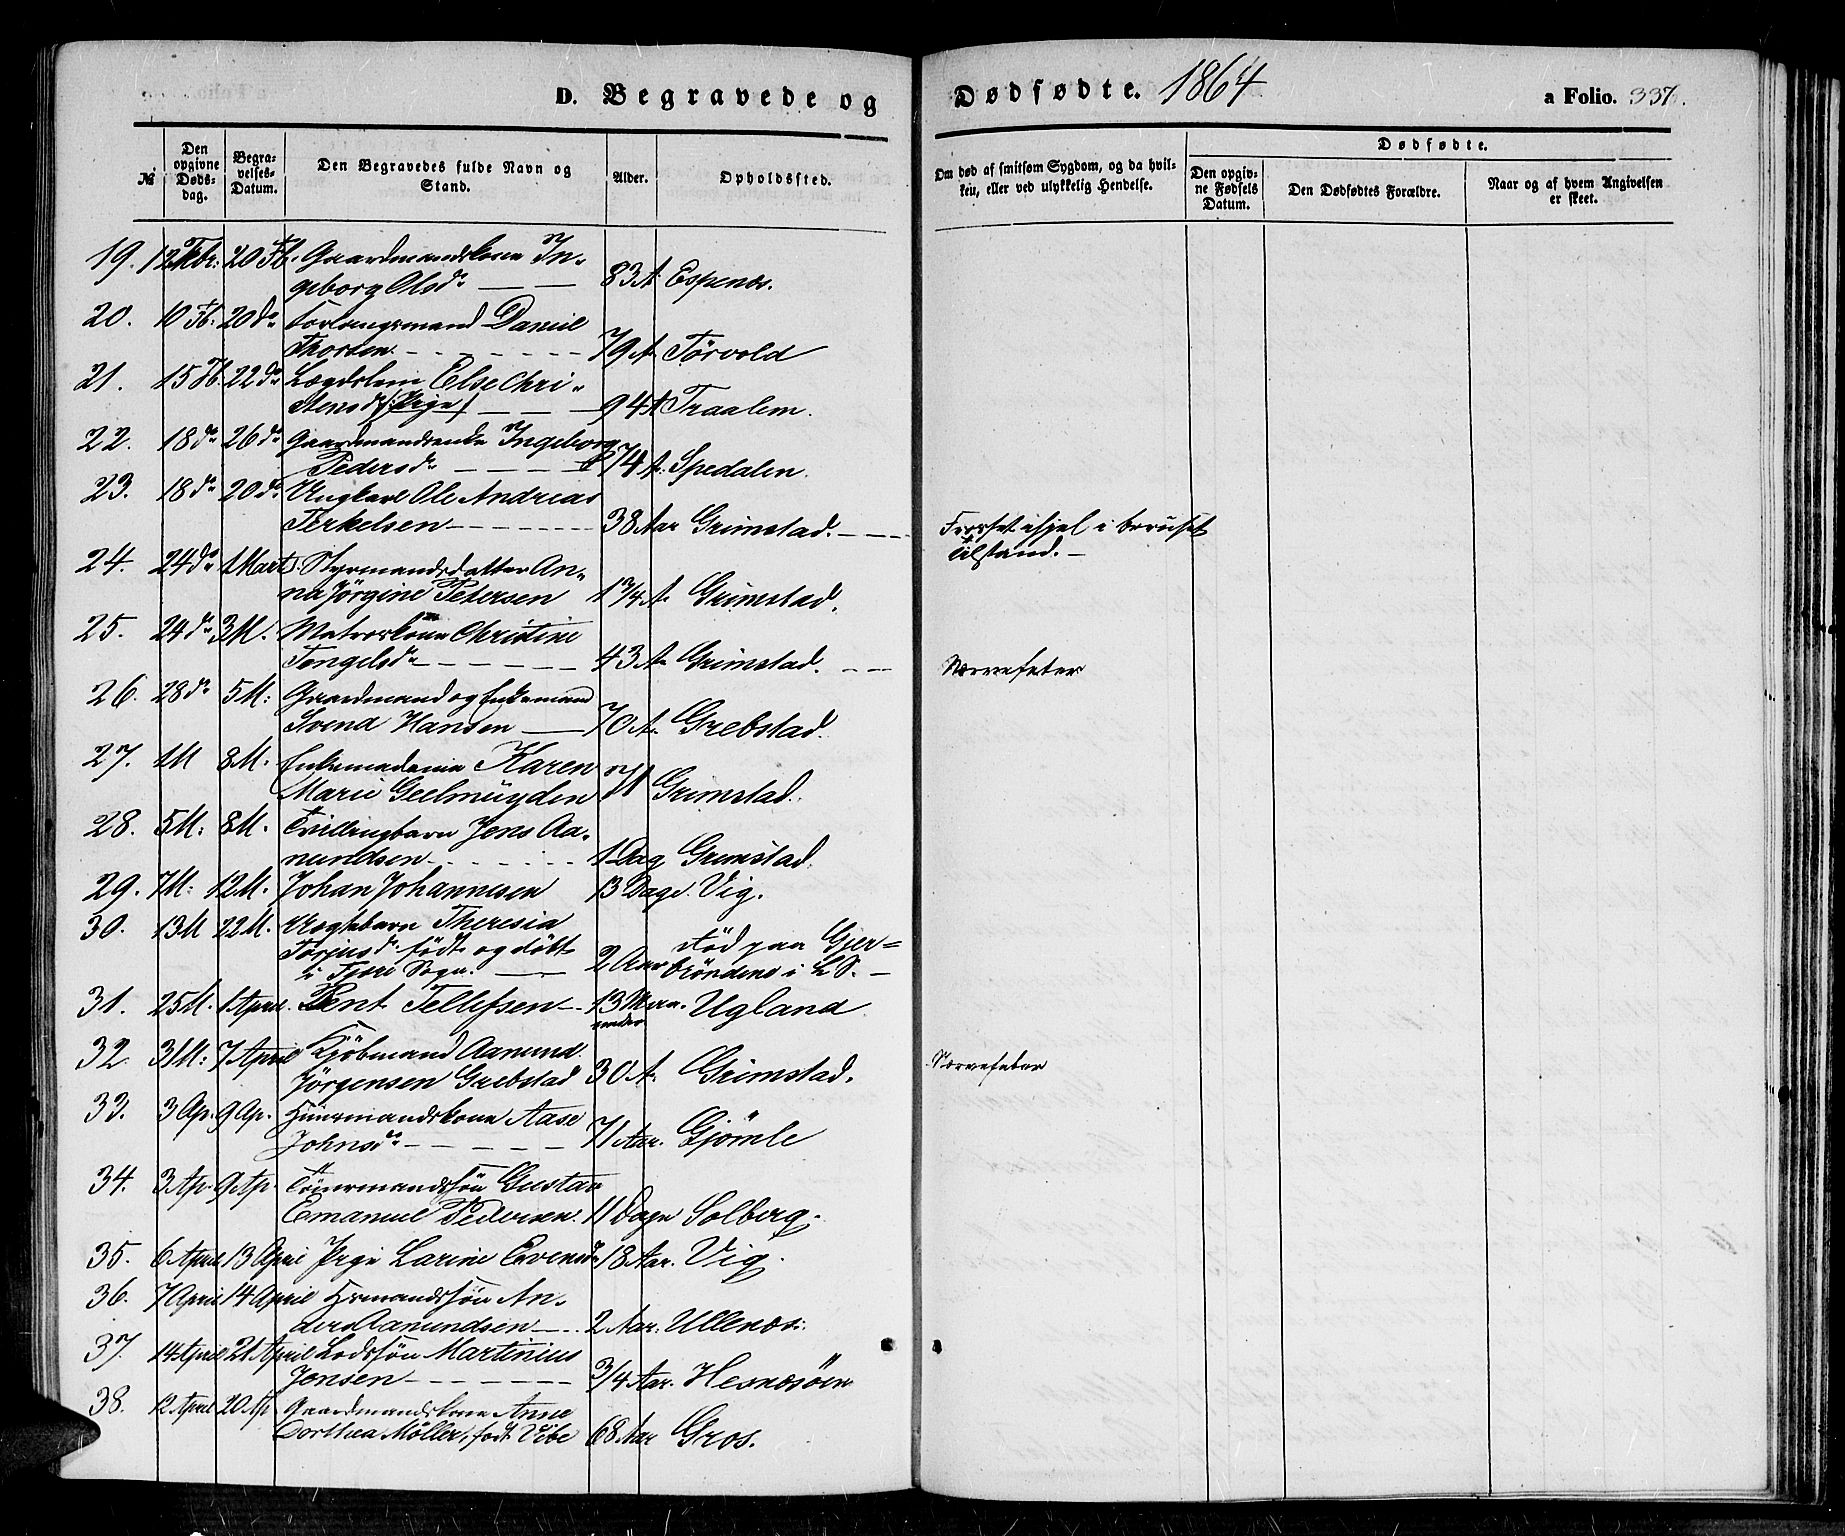 D. Begravede og
Dødfødte. 1864
a Folio. 337.
№
Den opgivne Døds-dag.
Begra-velses-Datum.
Den Begravedes fulde Navn og Stand.
Alder.
Opholdssted.
Om død af smitsom Sygdom, og da hvil-ken, eller ved ulykkelig Hendelse.
Dødfødte.
Den opgiv-ne Fødsels Datum.
Den Dødfødtes Forældre.
Naar og af hvem Angivelsen er skeet.
19. 12 Febr: 20 Fb. Gaardmandskone In-
geborg Olsdr — — 83 A Espenæs.
20. 10 Fb: 20 do Forlangsmand Daniel
Thorsen - - - - 79 A. Törvold
21. 15 Fb 22 do Lægdslem Else Chri-
stensd (Pige) — — 94 A Traalem.
22. 18 do 26 do Gaardmandsenke Ingeborg
Pedersdr — — — 74 A. Spedalen.
23. 18 do 20 do Ungkarl Ole Andreas
Terkelsen - - - - 38 Aar Grimstad. - - - Frosset ihjel i beruset
tilstand. -
24. 24 do 1 Marts. Styrmandsdatter An-
na Jörgine Petersen 1 3/4 A. Grimstad.
25. 24 do 3 M. Matroskone Christine
Tengelsdr - - - - 43 A. Grimstad. - - Nervefeber
26. 28 do 5 M: Gaardmand og Enkemand
Svend Hansen — 70 A. Grebstad.
27. 1 M 8 M. Enkemadame Karen
Marie Geelmuyden 71 Grimstad.
28. 5 M: 8 M. Tvillingbarn Jens Aa-
nundsen - - - - 1 Dag Grimstad.
29. 7 M: 12 M. Johan Johannesen 13 Dage. Vig.
30. 13 M 22 M. Theresia
Torjusdr født og døbt
i Fjære Sogn. — 2 Aar död paa Gjer-
bröndene i L S. -
31. 25 M. 1 April. Bent Tellefsen - 13 Maa-
neder Ugland
32. 31 M: 7 April Kjöbmand Aanund
Jörgensen Grebstad 30 A. Grimstad. Nervefeber
33. 3 Ap. 9 Ap. Huusmandskone Aase
Johnsdr - - - - 71 Aar. Gjömle
34. 3 Ap. 9 Ap. Gustav
Emanuel Pedersen. 11 Dage Solberg.
35. 6 April 13 April Pige Larine Evensdr 18 Aar. Vig.
36. 7 April 14 April An-
ders Aanundsen - 2 Aar. Ullenæs.
37. 14 April 21 April Lodssön Martinius
Jensen - - - - 3/4 Aar. Hesnæsöen
38. 12 April 20 Ap Gaardmandskone Anne
Dorthea Möller, født Vibe 68 Aar Gros.